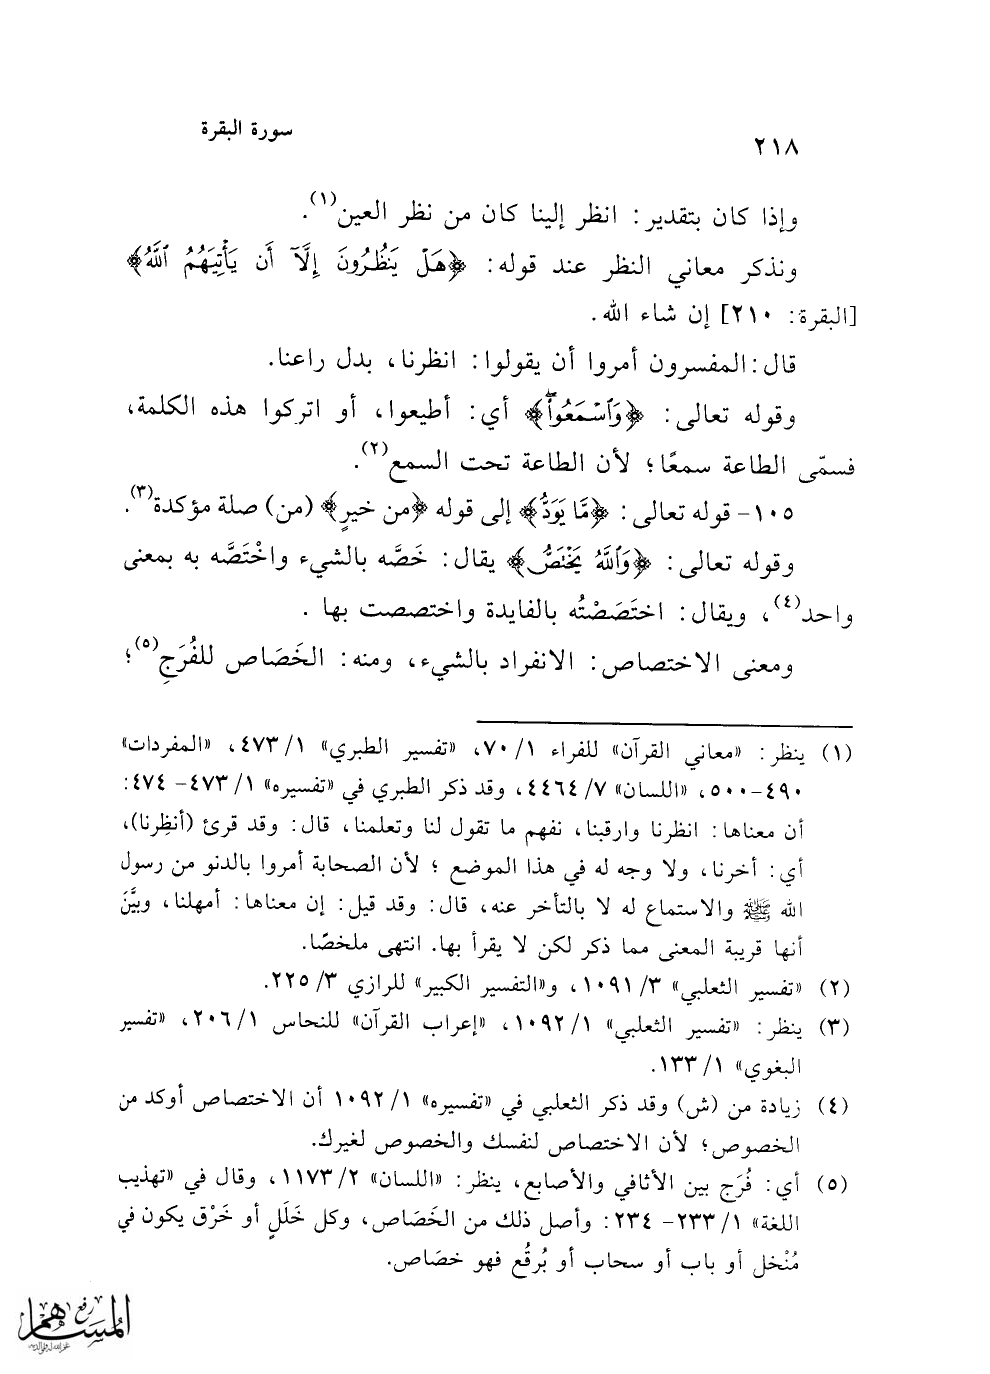 سورة البقرة
٢١٨
وإذا كان بتقدير: انظر إلينا كان من نظر العين(١).
ونذكر معاني النظر عند قوله: ﴿هَلْ يَنظُرُونَ إِلَّآ أَن يَأْتِيَهُمُ ٱللَّهُ﴾
[البقرة: ٢١٠] إن شاء الله.
قال: المفسرون أمروا أن يقولوا: انظرنا، بدل راعنا.
وقوله تعالى: ﴿وَٱسْمَعُوا۟ۗ﴾ أي: أطيعوا، أو اتركوا هذه الكلمة،
فسمّى الطاعة سمعًا؛ لأن الطاعة تحت السمع(٢).
١٠٥- قوله تعالى: ﴿مَّا يَوَدُّ﴾ إلى قوله ﴿من خيرٍ﴾ (من) صلة مؤكدة(٣).
وقوله تعالى: ﴿وَٱللَّهُ يَخْتَصُّ﴾ يقال: خَصَّه بالشيء واخْتَصَّه به بمعنى
واحد(٤)، ويقال: اختَصَصْتُه بالفايدة واختصصت بها .
ومعنى الاختصاص: الانفراد بالشيء، ومنه: الخَصَاص للفُرَجِ(٥)؛
(١) ينظر: «معاني القرآن» للفراء ١/ ٧٠، «تفسير الطبري» ١/ ٤٧٣، «المفردات»
٤٩٠-٥٠٠، «اللسان» ٧/ ٤٤٦٤، وقد ذكر الطبري في «تفسيره» ١/ ٤٧٣- ٤٧٤:
أن معناها: انظرنا وارقبنا، نفهم ما تقول لنا وتعلمنا، قال: وقد قرئ (أنظِرنا)،
أي: أخرنا، ولا وجه له في هذا الموضع ؛ لأن الصحابة أمروا بالدنو من رسول
الله ﷺ والاستماع له لا بالتأخر عنه، قال: وقد قيل: إن معناها: أمهلنا، وبيَّنَ
أنها قريبة المعنى مما ذكر لكن لا يقرأ بها. انتهى ملخصًا.
(٢) «تفسير الثعلبي» ٣/ ١٠٩١، و«التفسير الكبير» للرازي ٣/ ٢٢٥.
(٣) ينظر: «تفسير الثعلبي» ١/ ١٠٩٢، «إعراب القرآن» للنحاس ١/ ٢٠٦، «تفسير
البغوي» ١/ ١٣٣.
(٤) زيادة من (ش) وقد ذكر الثعلبي في «تفسيره» ١/ ١٠٩٢ أن الاختصاص أوكد من
الخصوص؛ لأن الاختصاص لنفسك والخصوص لغيرك.
(٥) أي: فُرَج بين الأثافي والأصابع، ينظر: «اللسان» ٢/ ١١٧٣، وقال في «تهذيب
اللغة» ١/ ٢٣٣- ٢٣٤: وأصل ذلك من الخَصَاص، وكل خَلَلٍ أو خَرْق يكون في
مُنْخل أو باب أو سحاب أو بُرقُع فهو خصَاص.